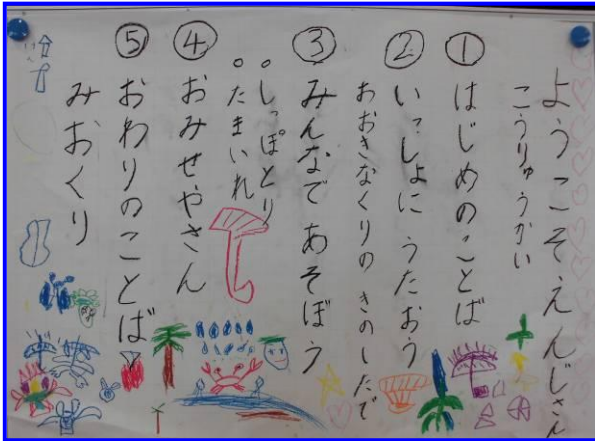 ようこそえんじさん
こうりゅうかい
① はじめのことば
② いっしょにうたおう
おおきなくりのきのしたで
③ みんなであそぼう
。しっぽとり
。たまいれ
④ おみせやさん
⑤ おわりのことば
みおくり